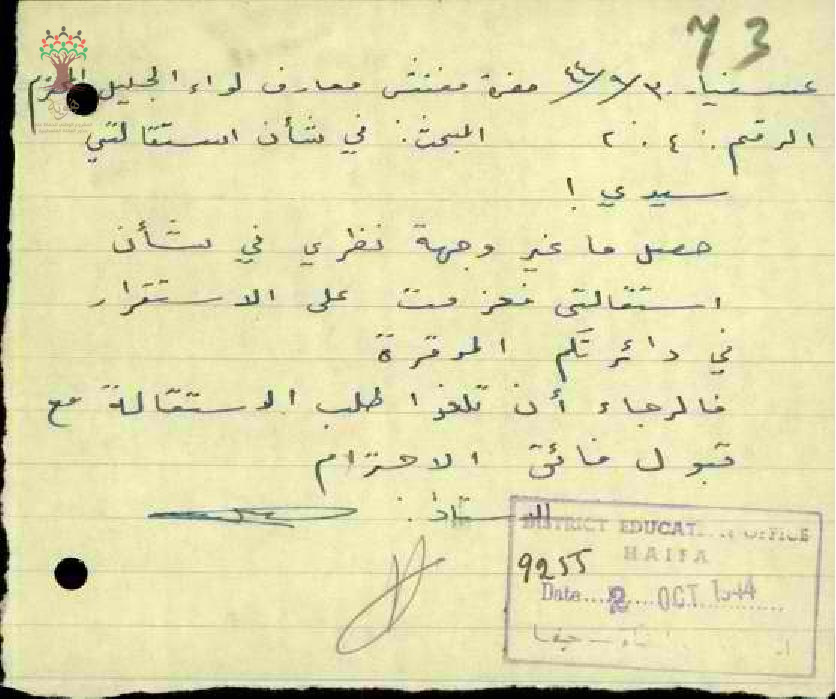 73
عسفيا ٣٠/٩/٤٤ حضرة مفتش معارف لواء الجليل المحترم
الرقم: ٢٠٤ البحث: في شأن استقالتي
سيدي!
حصل ما غير وجهة نظري في شأن
استقالتي فعزمت على الاستقرار
في دائرتكم الموقرة
فالرجاء أن تلغوا طلب الاستقالة مع
قبول فائق الاحترام
DISTRICT EDUCATION OFFICE
HAIFA
9255
Date 2 OCT 1944
حيفا